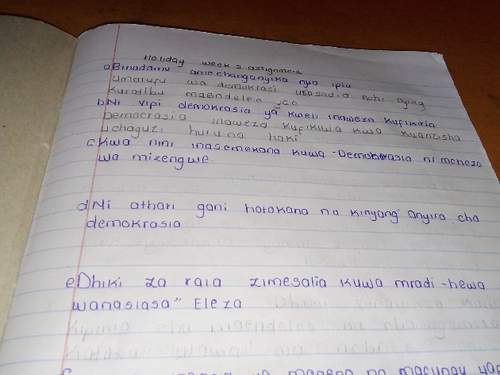 Holiday week 2 assignment
a Binadamu amechanganyika nya ipia
Umaarufu wa demokrasi utasuia nchi nying
Kuratibu maendeleo yao
b Ni vipi demokrasia ya kweli inaweza kufikiria
Democrasia inaweza kufikiwa kwa kuanzisha
uchaguzi huru na haki
c Kwa nini inasemekana kuwa - Demokrasia ni mchezo
wa mizengwe.
d Ni athari gani hotokana na kinyang'anyiro cha
demokrasia
e Dhiki za raia zimesalia kuwa mradi - hewa
wanasiasa" Eleza
ya maneno na macungu yao